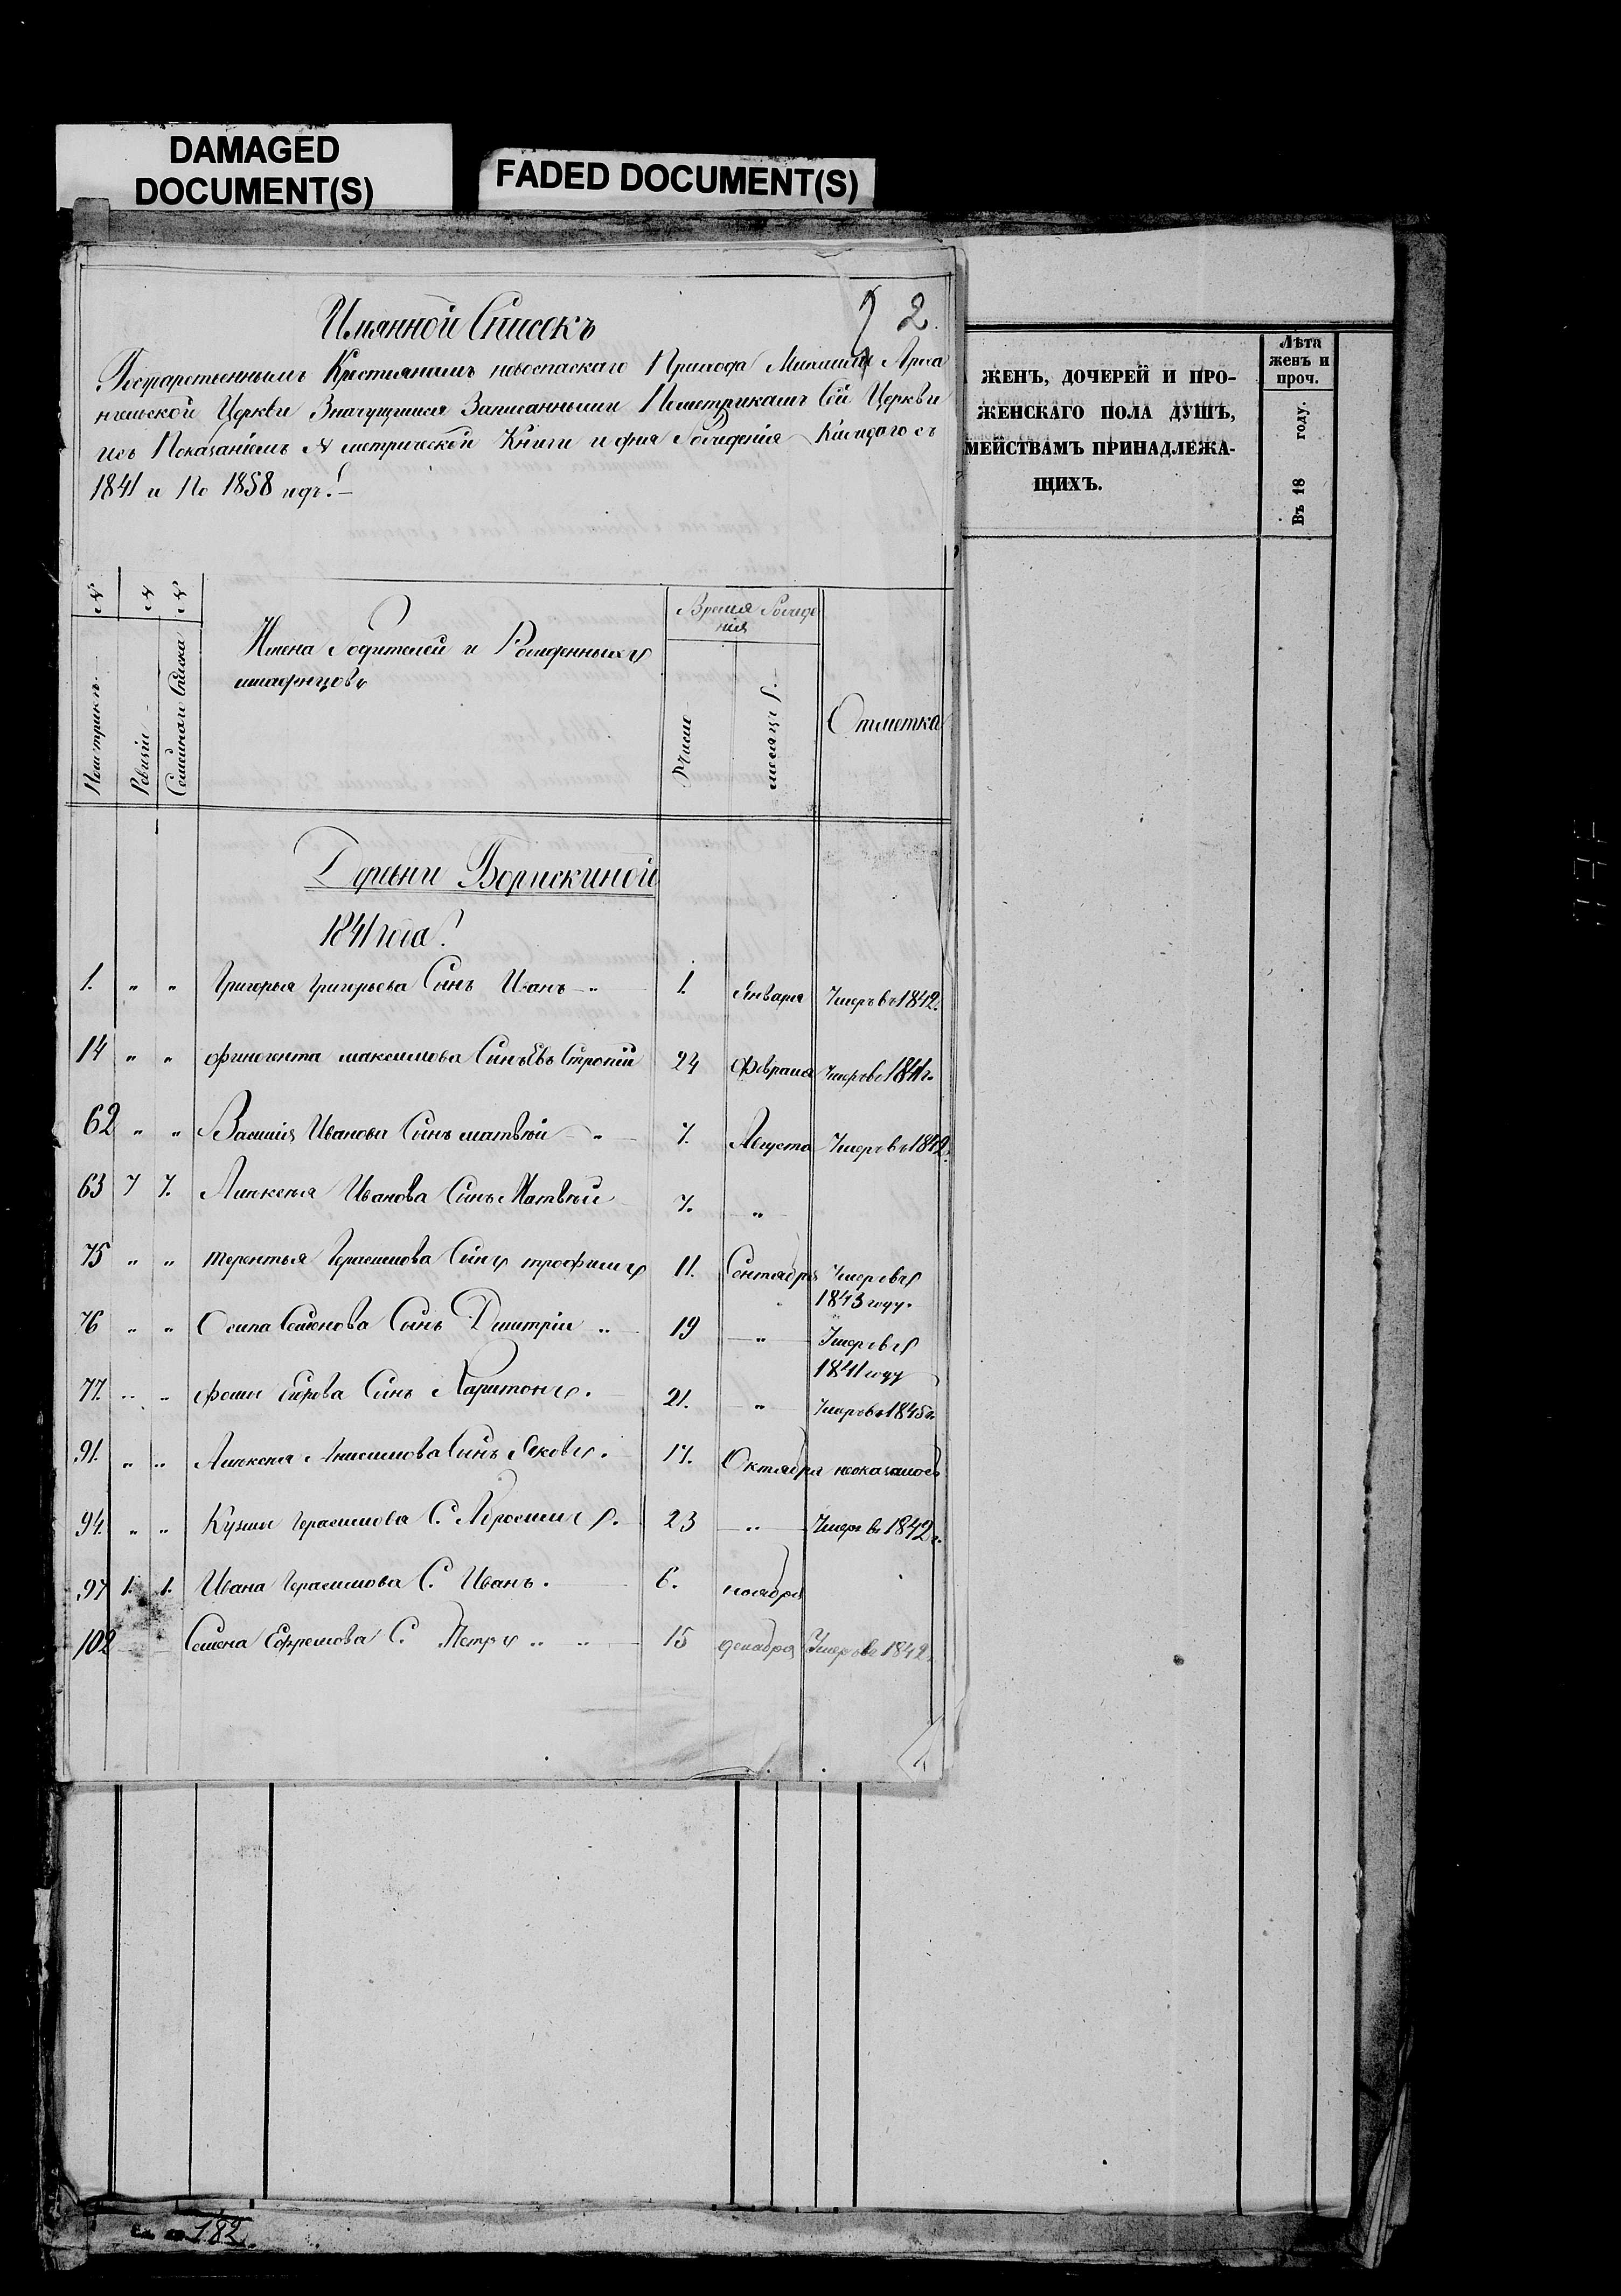 DAMAGED
DOCUMENT(S)
FADED DOCUMENT(S)
2.
Имянной Списокъ
Государственнымъ Крестьянамъ новоспаскаго Прихода Михаила Арха
нгельской Церкви Значущимся Записаннымъ Пометрикамъ Сей Церкви
Показаніемъ № метрической Книги и дня Рождения Каждаго съ
1841 и По 1858 годъ.
№
№
№
Пометрикъ
Ревизіи
Семейнаго Списка
Имена Родителей и Рожденныхъ
младенцовъ
Время Рожде
нія
Число
месяцъ
Отметка
Деревни Борискиной
1841 года
1. " " Григорья Григорьева Сынъ Иванъ " 1. Января Умеръ въ 1842.
14 " " финогента максимова Сынъ Евъ Стропій 24 Февраля Умеръ въ 1841 г.
62 " " Василия Иванова Сынъ матвей " 7. Августа Умеръ въ 1842.
63 7 7. Аликсея Иванова Сынъ Матвей 7. "
75 " " терентья Герасимова Сынъ трофимъ 11. Сентября Умеръ въ
1843 году.
76 " " Осипа Семенова Сынъ Дмитрій " 19 " Умеръ въ
1841 году
77. " " фомы Сынъ Харитонъ. 21. " Умеръ въ 1845 г.
91. " " Аликсея Анисимова Сынъ Яковъ. 17. Октября неоказалось
94. " " Кузмы Герасимова С. 23 " Умеръ въ 1842 г.
97 1. 1. Ивана Герасимова С. Иванъ. 6. ноября
102 Семена Ефремова С. Петръ " " 15 декабря Умеръ въ 1842.
ЖЕНЪ, ДОЧЕРЕЙ И ПРО-
ЖЕНСКАГО ПОЛА ДУШЪ,
МЕЙСТВАМЪ ПРИНАДЛЕЖА-
ЩИХЪ.
Лѣта
женъ и
проч.
Въ 18 году.
182.